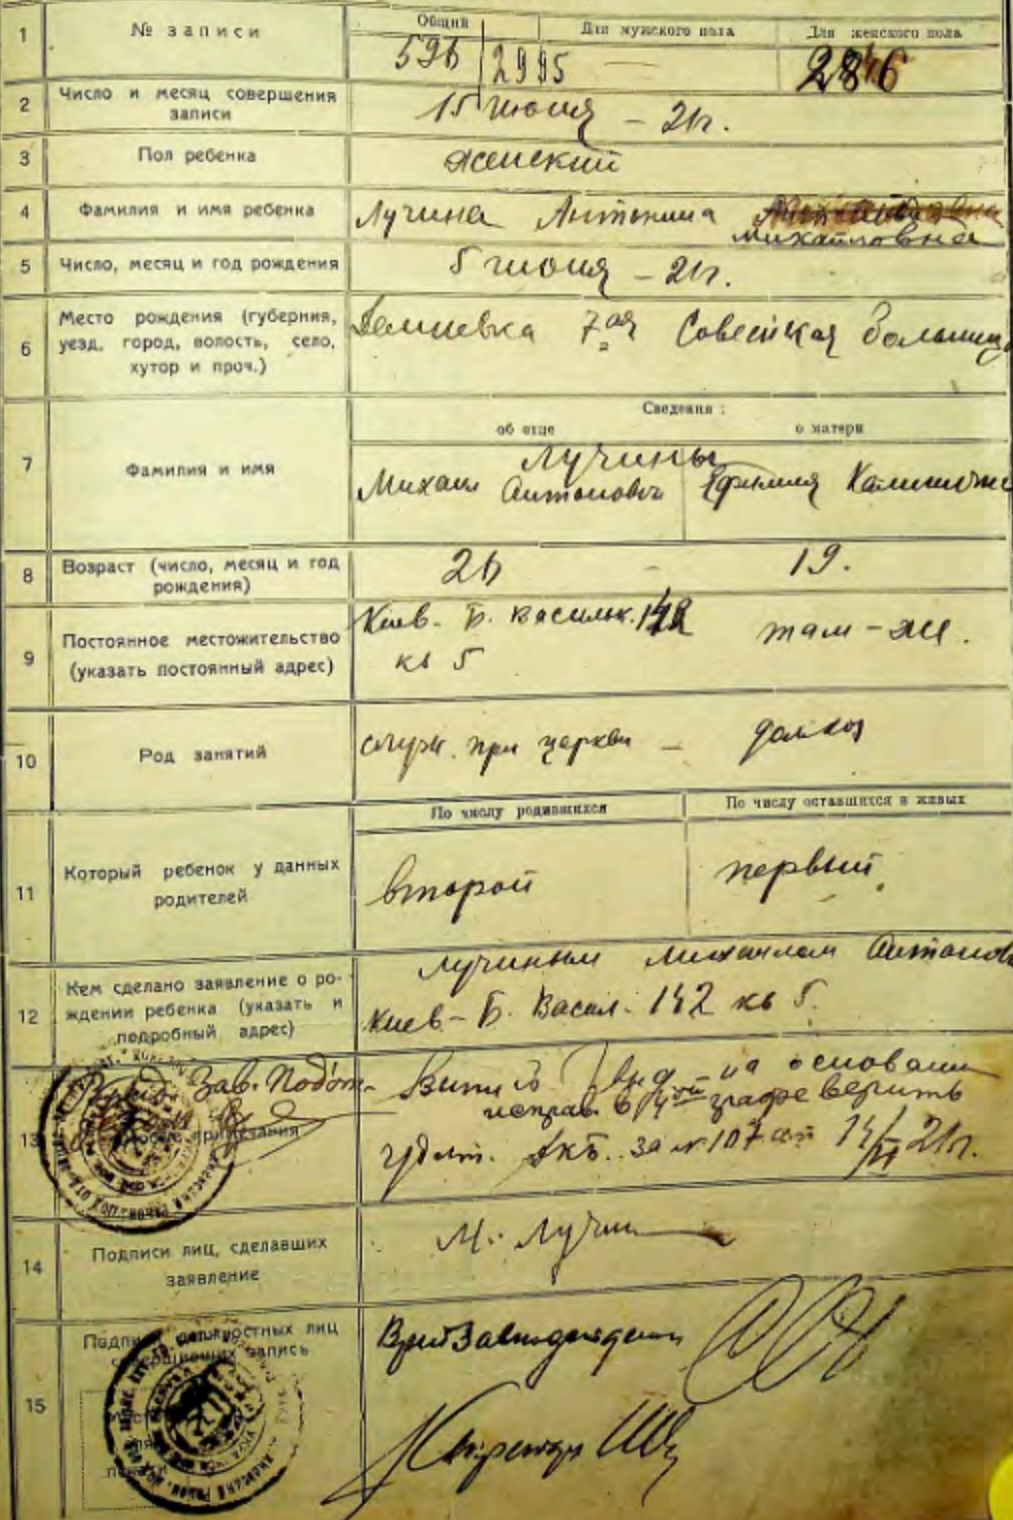 1 № записи Общий Для мужского пола Для женского пола
596 2995 — 2846
2 Число и месяц совершения записи 15 июня – 21г.
3 Пол ребенка женский
4 Фамилия и имя ребенка Лучина Антонина
Михайловна
5 Число, месяц и год рождения 5 июня – 21г.
6 Место рождения (губерния,
уезд, город, волость, село,
хутор и проч.)
Демиевка 7ая Советская больниц
Сведения:
об отце о матери
7 Фамилия и имя
Лучины
Михаил Антонович
8 Возраст (число, месяц и год
рождения)
26 – 19.
9 Постоянное местожительство
(указать постоянный адрес)
Киев- Б. Васильк. 142
кв 5
там-же.
10 Род занятий служ. при церкви – домхоз
По числу родившихся По числу оставшихся в живых
11 Который ребенок у данных
родителей
второй первый
12 Кем сделано заявление о ро-
ждении ребенка (указать и
подробный адрес)
Лучиным Михаилом Антонов
Киев- Б. Васил. 142 кв 5.
13 примечания
Зав. Подот.
на основании
исправ. в 4ой графе верить
акт. за № 107 от 14/VI 21г.
14 Подписи лиц, сделавших
заявление
М. Лучин
15 Подписи должностных лиц
совершивших запись
ВридЗаведующего